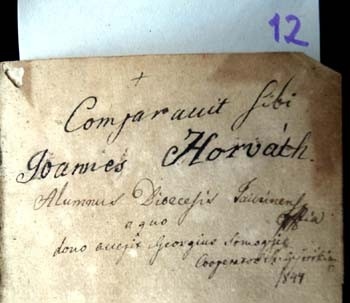 12
†
Comparavit sibi
Joannes Horváth.
Alumnus Dioecesis Jaurinensis
a quo
dono accepit Georgius Somogyi
Cooperator
1844